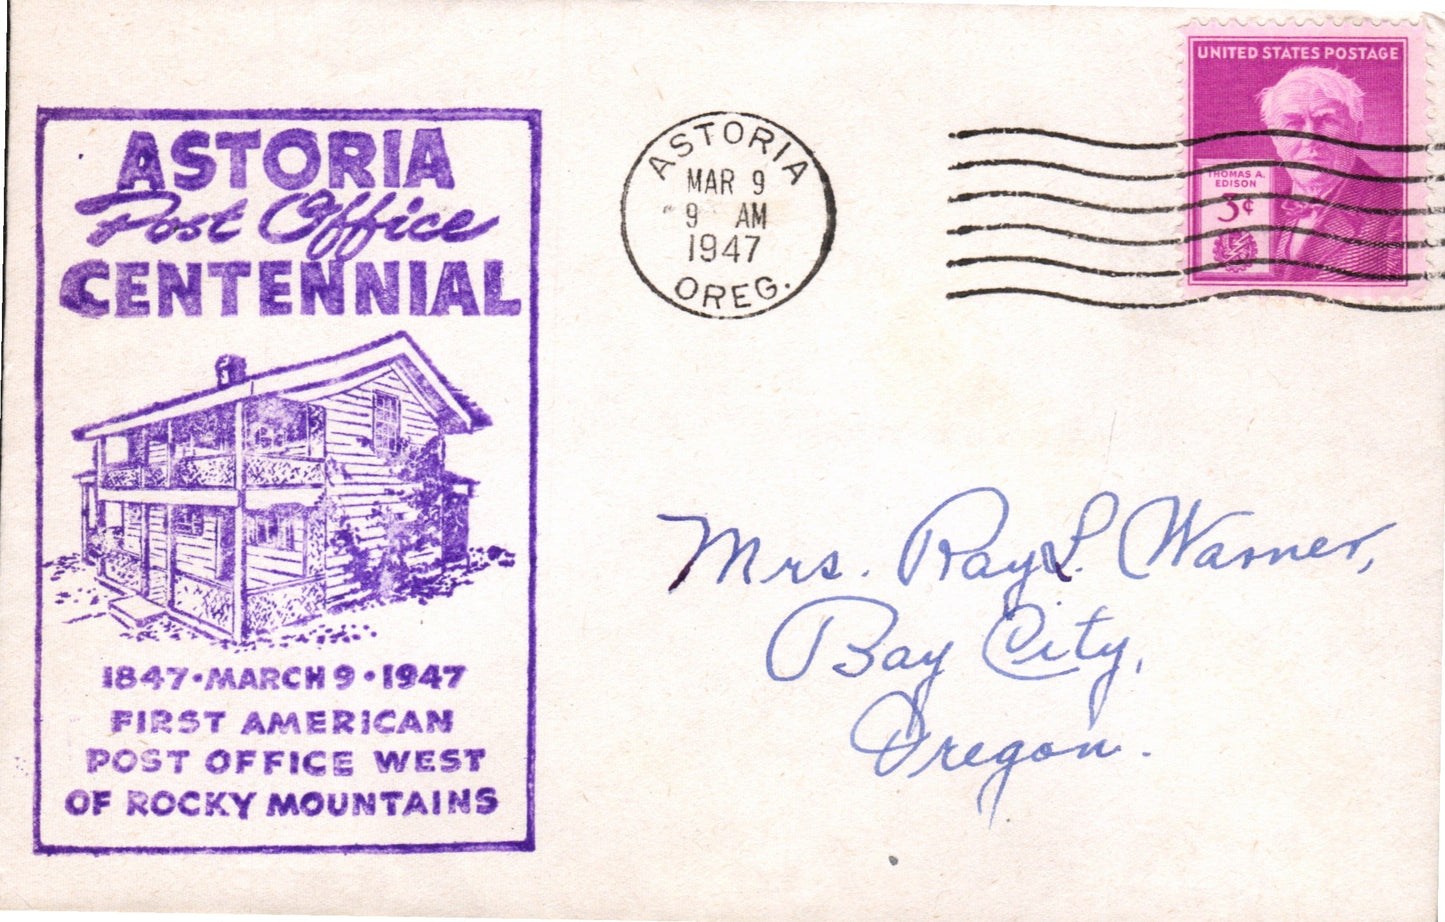 ASTORIA
Post Office
CENTENNIAL
1847·MARCH 9·1947
FIRST AMERICAN
POST OFFICE WEST
OF ROCKY MOUNTAINS
ASTORIA
MAR 9
9 AM
1947
OREG.
UNITED STATES POSTAGE
THOMAS A.
EDISON
3¢
Mrs. Ray L. Warner,
Bay City,
Oregon.